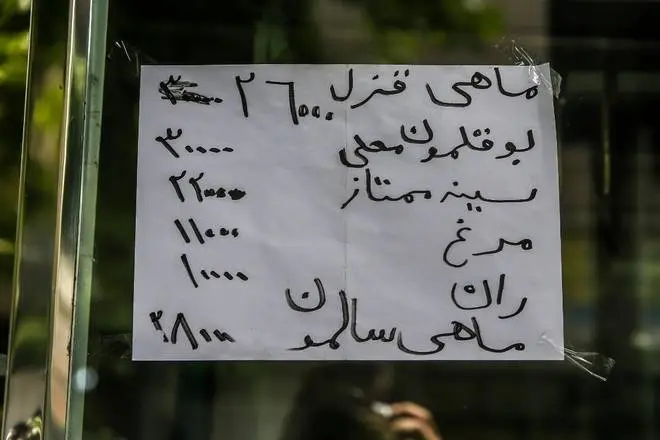 ماهی قزل ۲۶۰۰۰
بوقلمون محلی ۳۰۰۰۰
سینه ممتاز ۲۲۰۰۰
مرغ ۱۱۰۰۰
ران ۱۰۰۰۰
ماهی سالمون ۳۸۰۰۰